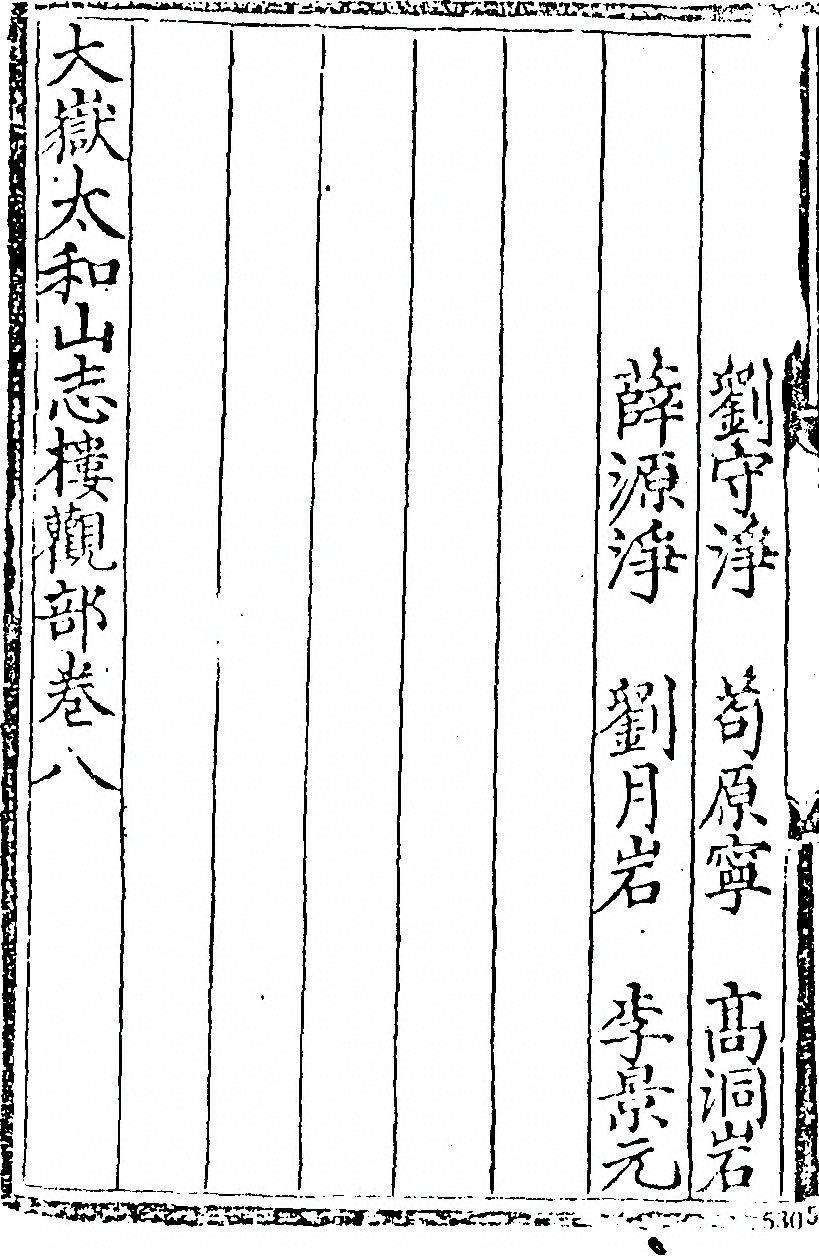 劉守淨　茍原寧　高洞岩
薛源淨　劉月岩　李景元
大嶽太和山志樓觀部卷八